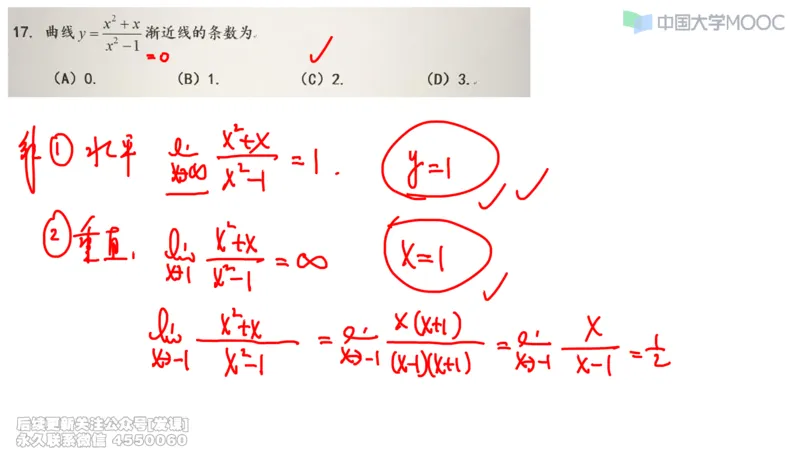 中国大学MOOC
17. 曲线 y = (x² + x)/(x² − 1) 渐近线的条数为
=0
✓
(A) 0. (B) 1. (C) 2. (D) 3.
解 ① 水平 lim x→∞ (x²+x)/(x²−1) = 1. y=1 ✓✓
② 垂直, lim x→1 (x²+x)/(x²−1) = ∞ x=1 ✓
lim x→−1 (x²+x)/(x²−1) = lim x→−1 x(x+1)/((x−1)(x+1)) = lim x→−1 x/(x−1) = 1/2
后续更新关注公众号[发课]
永久联系微信 4550060